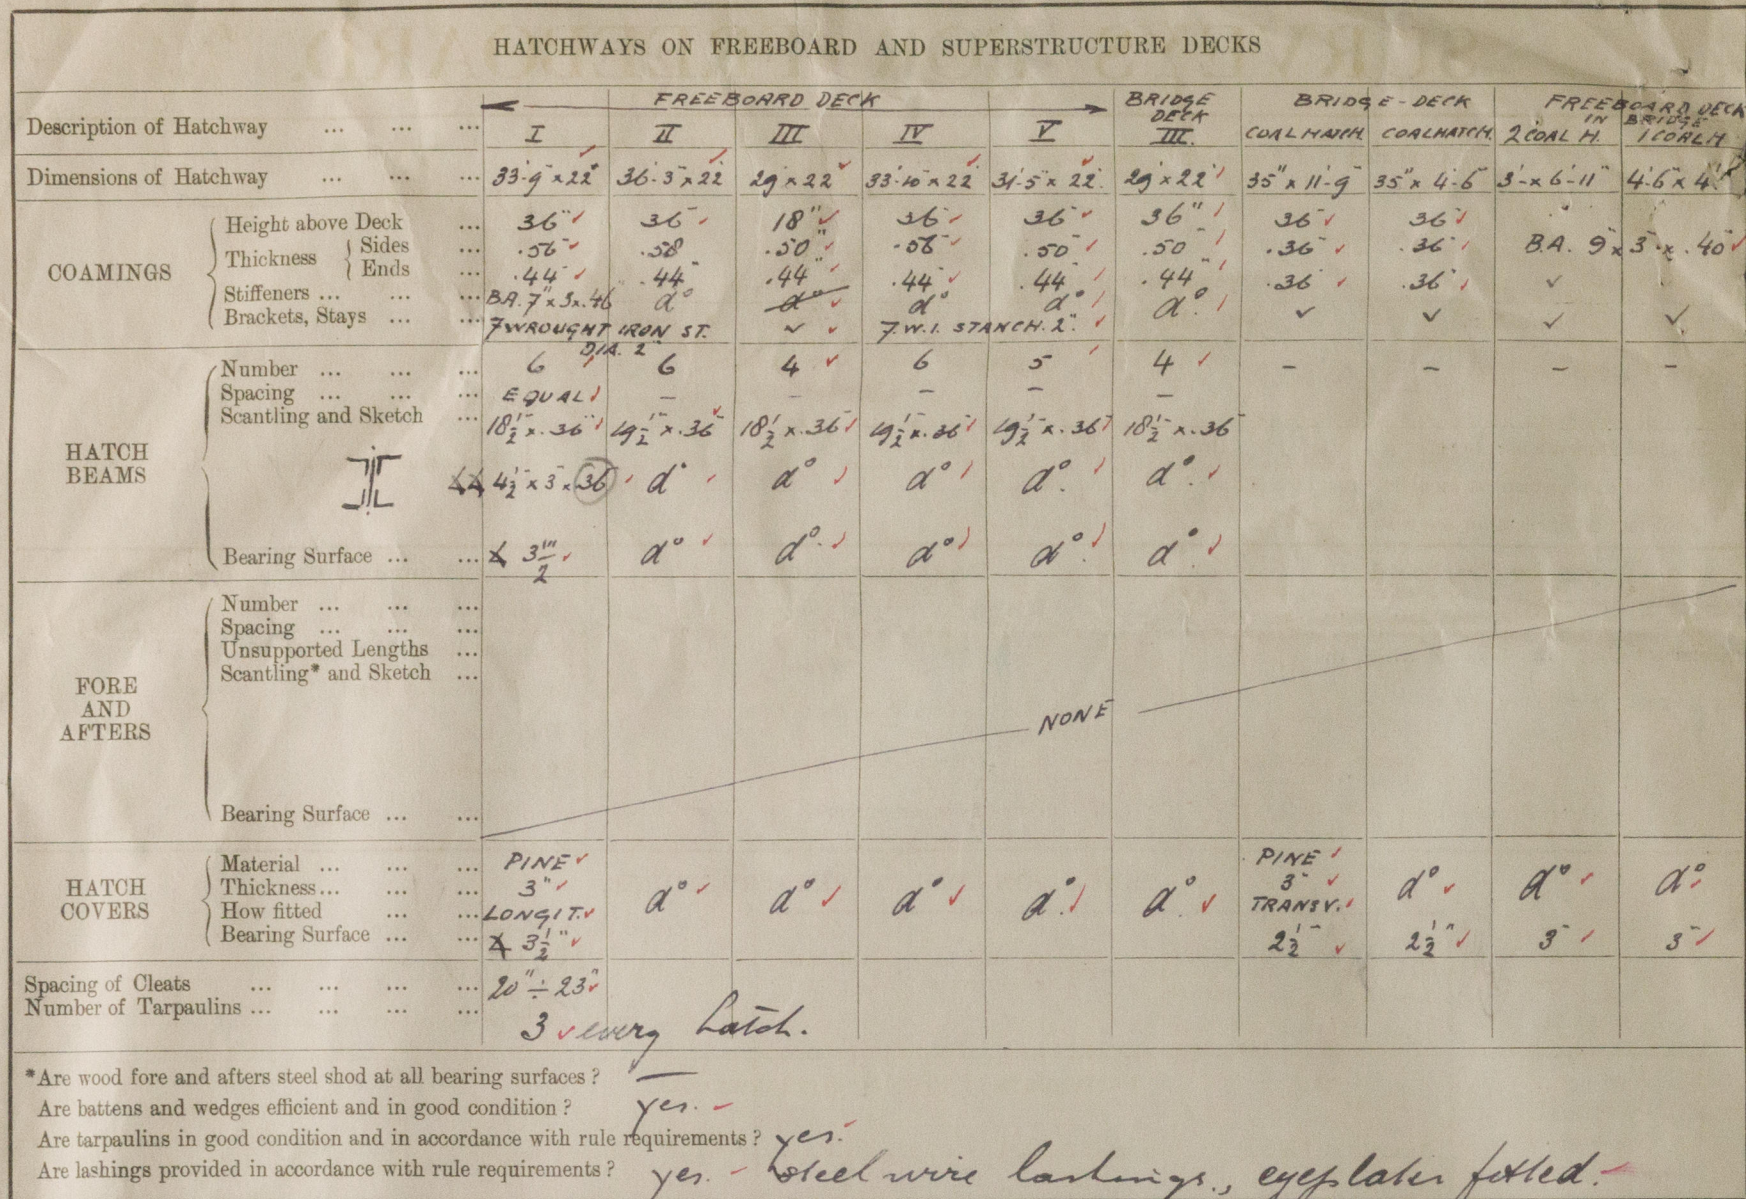 HATCHWAYS ON FREEBOARD AND SUPERSTRUCTURE DECKS
FREEBOARD DECK BRIDGE DECK BRIDGE-DECK FREEBOARD DECK IN BRIDGE
Description of Hatchway ... ... ... I II III IV V III. COALHATCH COALHATCH. 2 COAL H. 1 COAL H
Dimensions of Hatchway ... ... ... 33'-9" x 22' 36'-3" x 22' 29' x 22' 33'-10" x 22' 31'-5" x 22'. 29' x 22' 35" x 11'-9" 35" x 4'-6" 3'- x 6'-11" 4'-6" x 4'
COAMINGS
Height above Deck ... 36" 36" 18" 36" 36" 36" 36" 36"
Thickness Sides ... .56" .58 .50" .56" .50" .50" .36" .36" B.A. 9" x 3" x .40"
Ends ... .44" .44" .44" .44" .44" .44" .36" .36" ✓
Stiffeners ... ... ... B.A. 7" x 3 x .46" do do do do do.
Brackets, Stays ... ... 7 WROUGHT IRON ST. DIA. 2" ✓ 7 W.I. STANCH. 2". ✓ ✓ ✓ ✓
HATCH BEAMS
Number ... ... ... 6 6 4 6 5 4 – – – –
Spacing ... ... ... EQUAL – – – – –
Scantling and Sketch ... 18½" x .36" 19½" x .36" 18½ x .36" 19½" x .36" 19½" x .36" 18½" x .36"
4½" x 3" x 36 do do do do. do.
Bearing Surface ... ... 3½" do do. do do. do.
FORE AND AFTERS
Number ... ... ...
Spacing ... ... ...
Unsupported Lengths ...
Scantling* and Sketch ...
NONE
Bearing Surface ... ...
HATCH COVERS
Material ... ... ... PINE PINE
Thickness ... ... ... 3" do do do do. do. 3" do do do
How fitted ... ... LONGIT. TRANSV.
Bearing Surface ... ... 3½" 2½" 2½" 3" 3"
Spacing of Cleats ... ... ... ... 20" ÷ 23"
Number of Tarpaulins ... ... ... ... 3 every hatch.
*Are wood fore and afters steel shod at all bearing surfaces? —
Are battens and wedges efficient and in good condition? yes.
Are tarpaulins in good condition and in accordance with rule requirements? yes.
Are lashings provided in accordance with rule requirements? yes. - Steel wire lashings, eyeplates fitted.